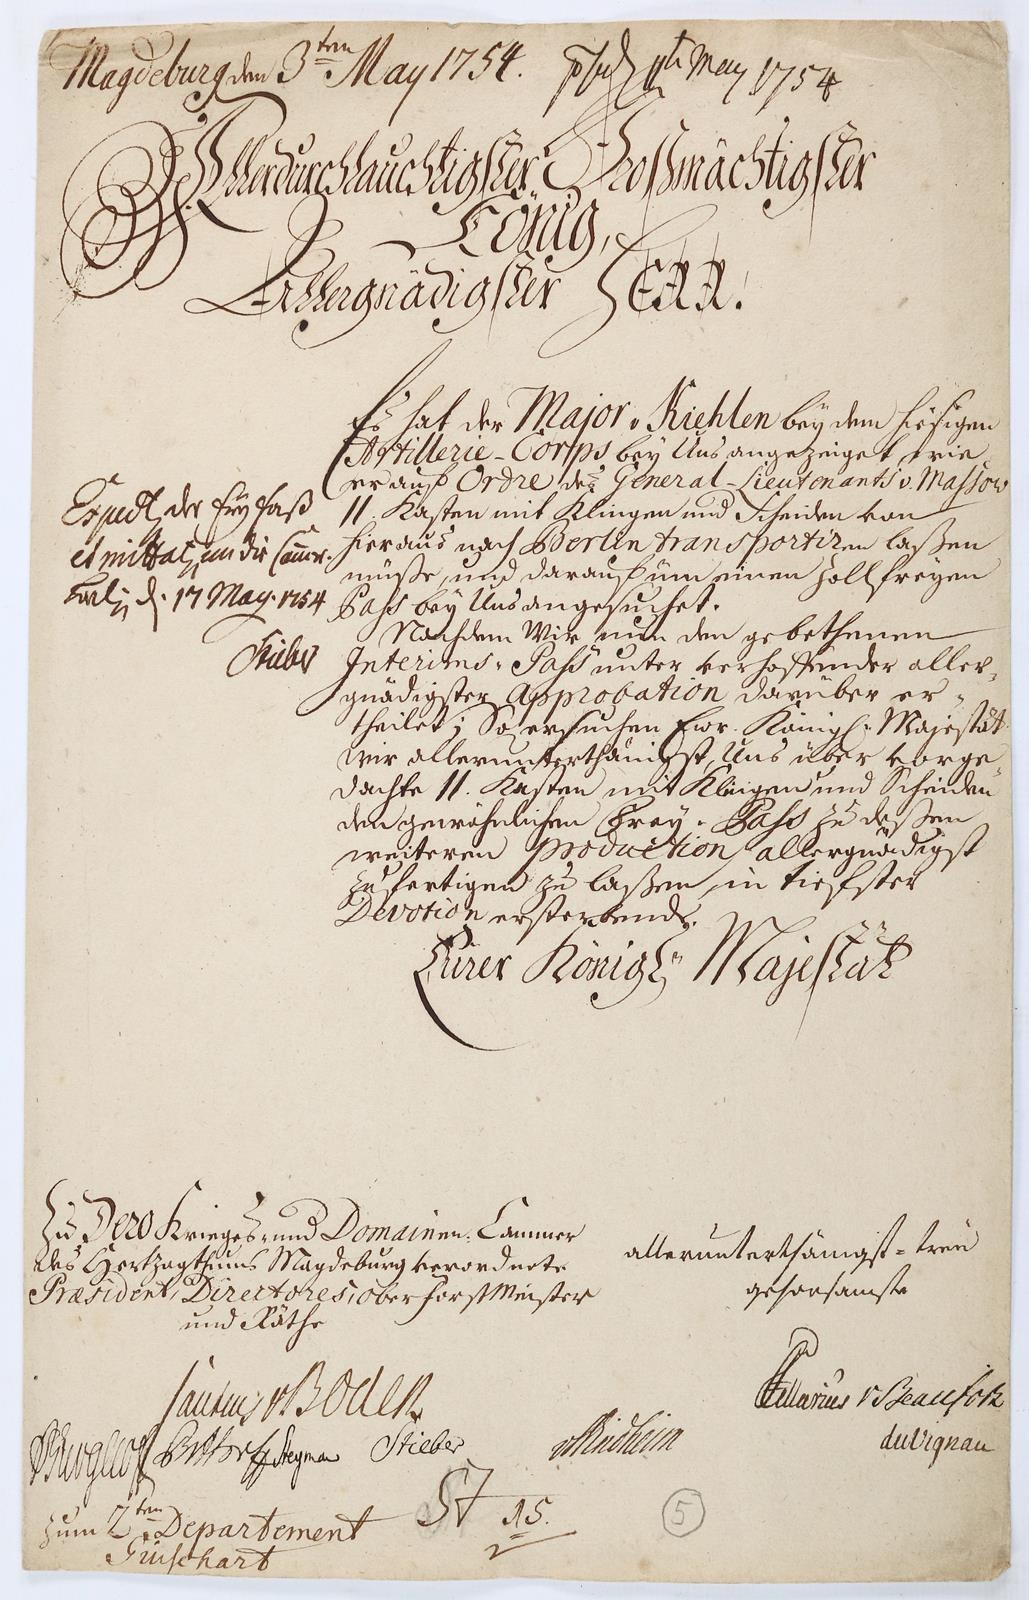 Magdeburg den 3ten May 1754. 11t May 1754
Allerdurchlauchtigster, Großmächtigster
König,
Allergnädigster HERR!
Es hat der Major v Kiehlen bey dem hiesigen
Artillerie-Corps bey Uns angezeiget, wie
er auf Ordre des General-Lieutenants v. Massow
11. Kasten mit Klingen und Scheiden von
hier aus nach Berlin transportiren laßen
müße, und darauf um einen Zollfreyen
Pass bey Uns angesuchet.
Nachdem Wir nun den gebethenen
Interims-Pass unter verhoffender aller-
gnädigster Approbation darüber er-
theilet; So ersuchen Ewr. Königl. Majestät
wir allerunterthänigst, Uns über vorge-
dachte 11. Kasten mit Klingen und Scheiden
den gewöhnlichen Frey-Pass zu deßen
weiteren production, allergnädigst
zufertigen zu laßen, in tiefster
Devotion ersterbende.
Eurer Königl. Majestät
der
et an die
d. 17 May. 1754
Stieber
Zu Dero Krieges- und Domainen-Cammer
des Hertzogthums Magdeburg verordnete
Præsident, Directores, Oberforstmeister
und Räthe
allerunterthänigst-treu
gehorsamste
v. Beaufort
Stegman Stieber duVignau
zum 2ten Departement
15.
5